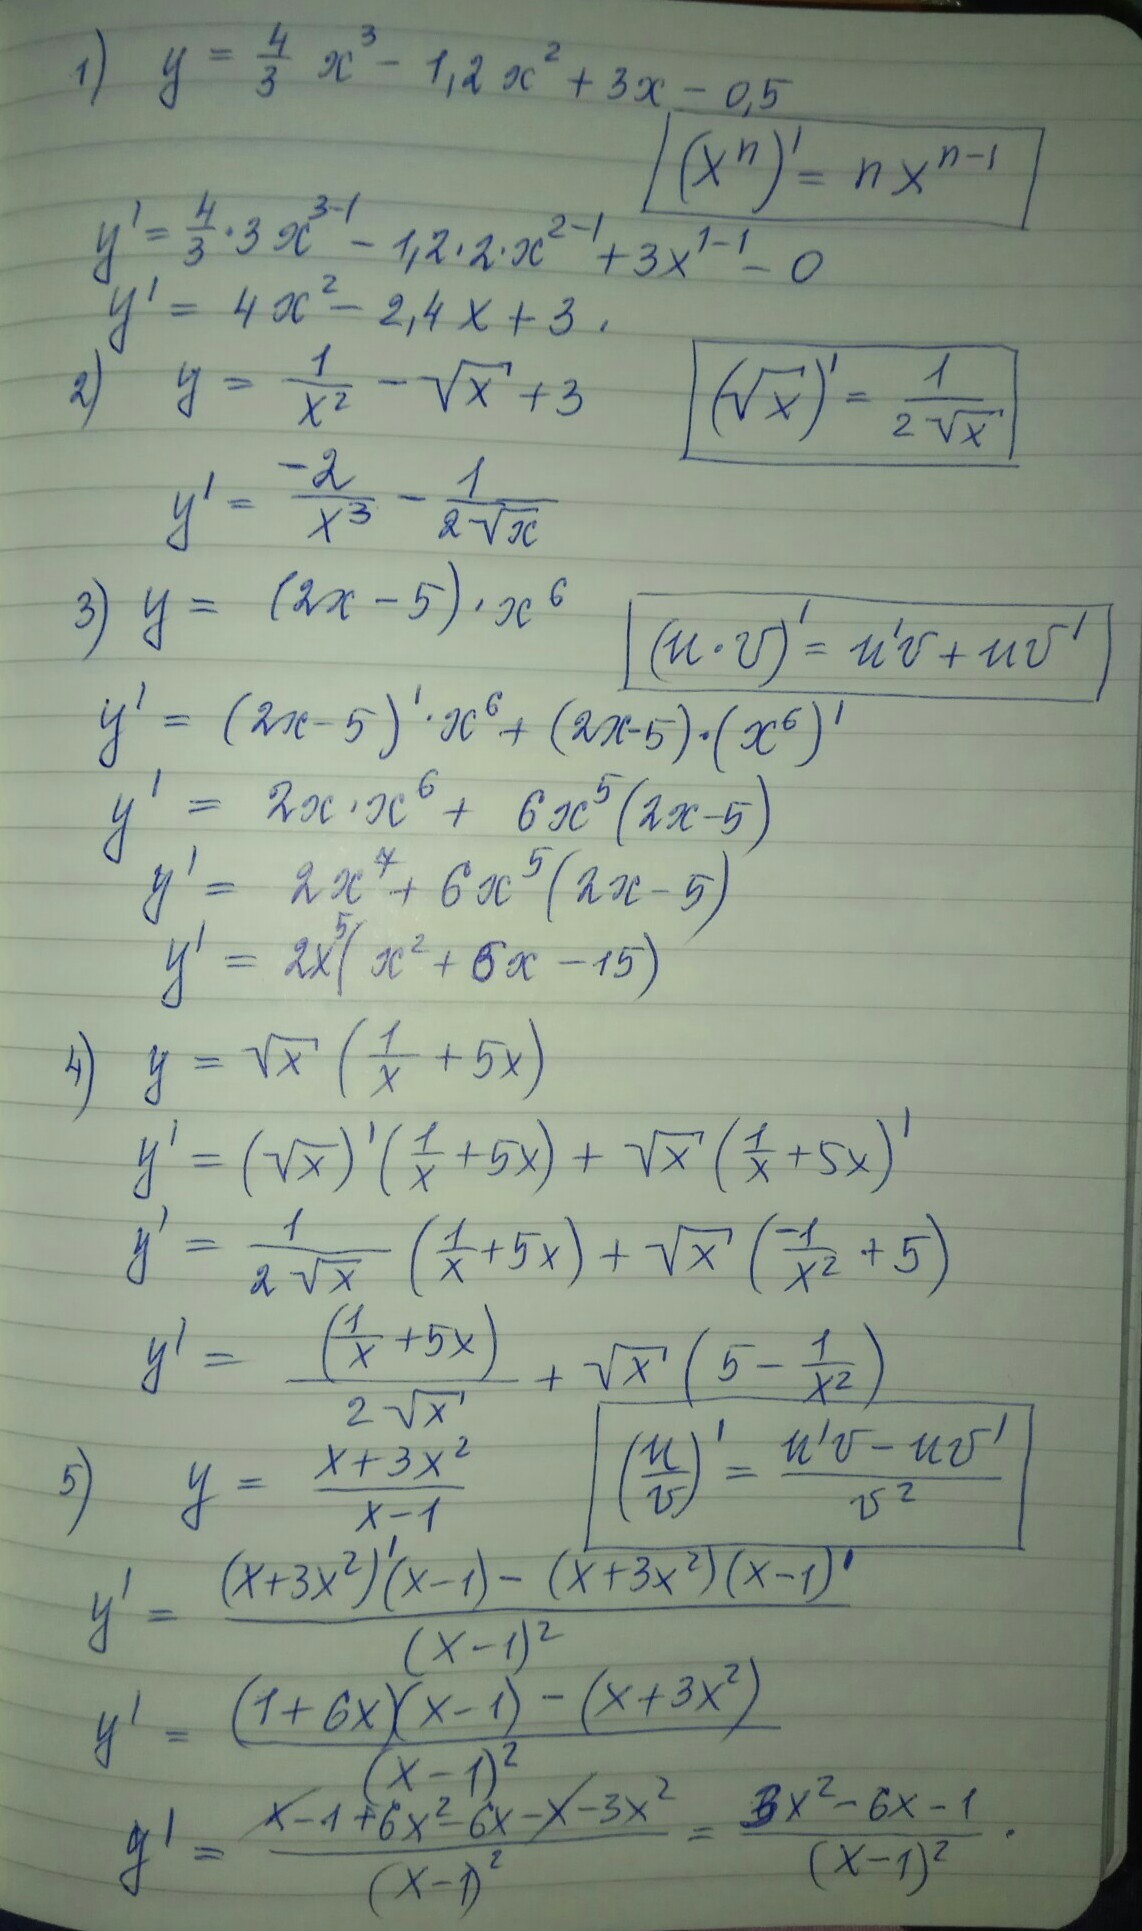 1) y = 4/3 x³ - 1,2x² + 3x - 0,5
(xⁿ)' = nxⁿ⁻¹
y' = 4/3 · 3x³⁻¹ - 1,2 · 2 · x²⁻¹ + 3x¹⁻¹ - 0
y' = 4x² - 2,4x + 3.
2) y = 1/x² - √x + 3
(√x)' = 1/(2√x)
y' = -2/x³ - 1/(2√x)
3) y = (2x - 5) · x⁶
(u · v)' = u'v + uv'
y' = (2x - 5)' · x⁶ + (2x - 5) · (x⁶)'
y' = 2x · x⁶ + 6x⁵(2x - 5)
y' = 2x⁷ + 6x⁵(2x - 5)
y' = 2x⁵(x² + 6x - 15)
4) y = √x (1/x + 5x)
y' = (√x)' (1/x + 5x) + √x (1/x + 5x)'
y' = 1/(2√x) (1/x + 5x) + √x (-1/x² + 5)
y' = (1/x + 5x)/(2√x) + √x (5 - 1/x²)
5) y = (x + 3x²)/(x - 1)
(u/v)' = (u'v - uv')/v²
y' = ((x + 3x²)'(x - 1) - (x + 3x²)(x - 1)')/(x - 1)²
y' = ((1 + 6x)(x - 1) - (x + 3x²))/(x - 1)²
y' = (x - 1 + 6x² - 6x - x - 3x²)/(x - 1)² = (3x² - 6x - 1)/(x - 1)².